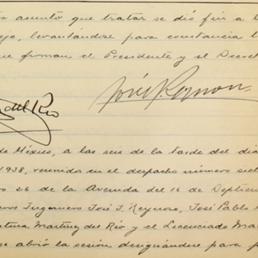 asunto que tratar se dió fin a
levantándose para constancia
que firman el Presidente y el
del Rio
José J.
de México, a las seis de la tarde del día
1938, reunidos en el despacho número
de la Avenida del 16 de
Ingenieros José J. Reynoso, José Pablo
Martínez del Río y el Licenciado
se abrió la sesión designándose para